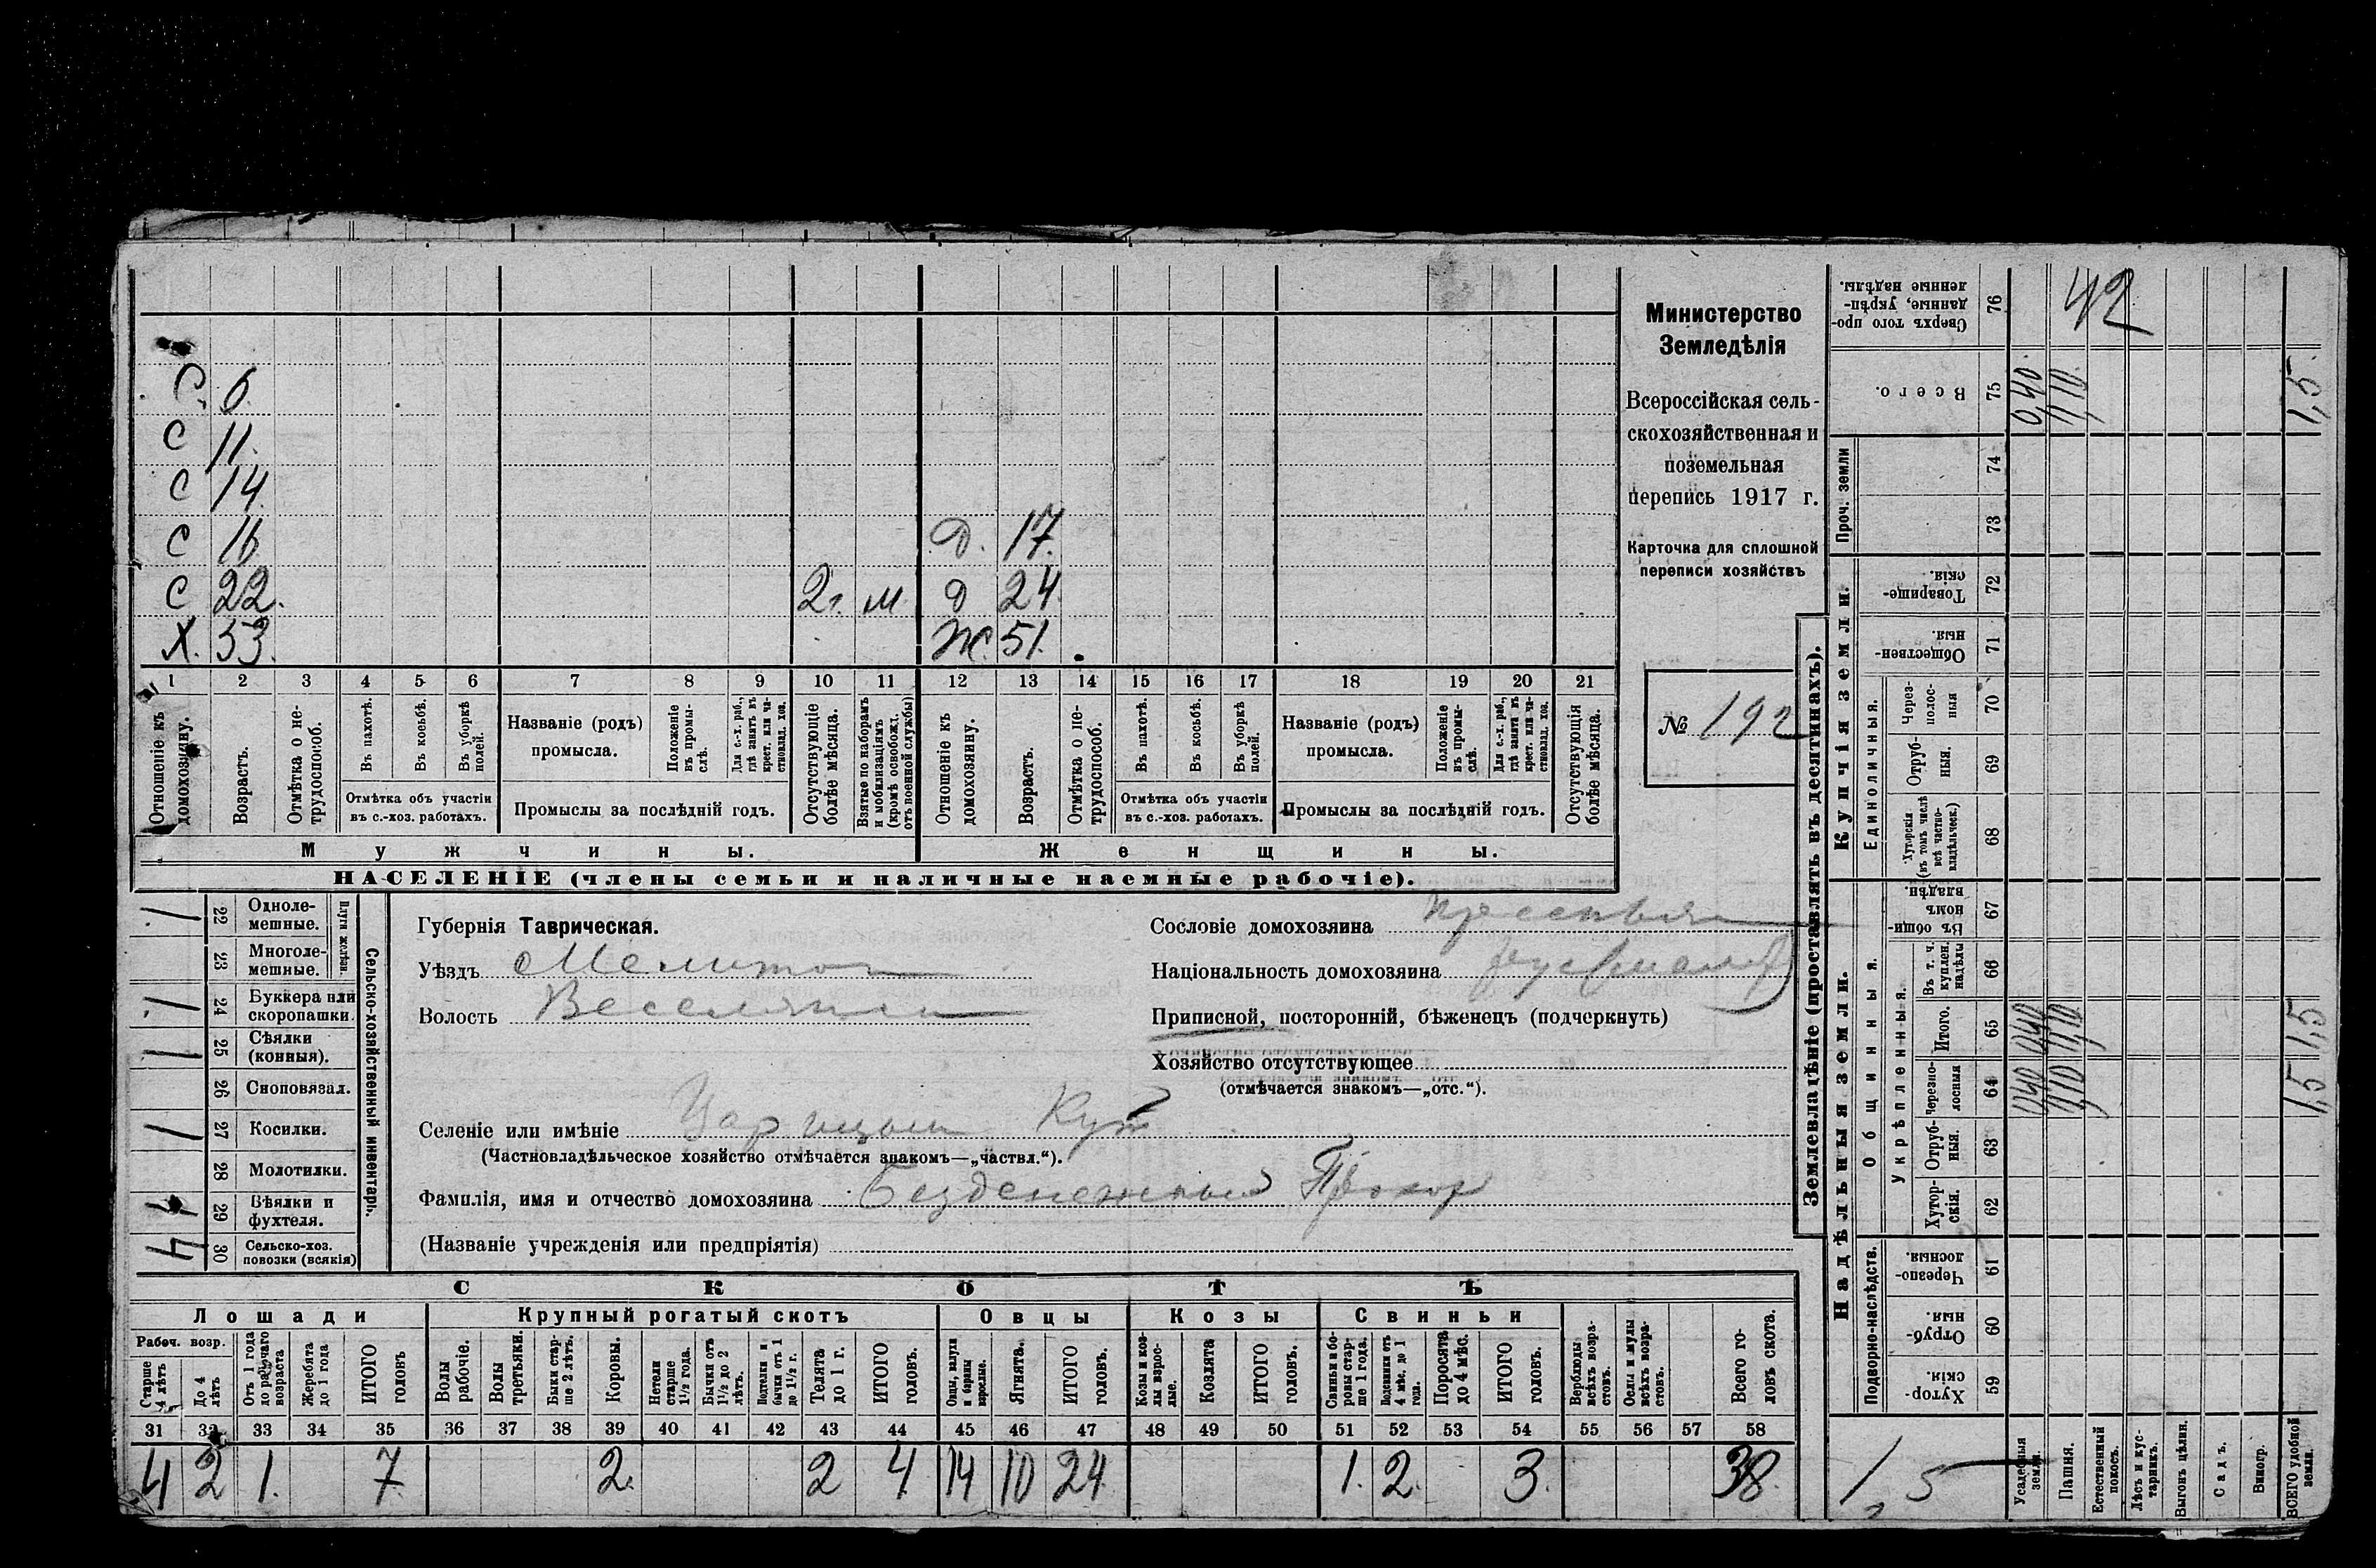 С 6.
С 11.
С 14.
С 16 Д. 17.
С 22. 2 г. м Д 24
Х. 53. Ж. 51.
1 2 3 4 5 6 7 8 9 10 11 12 13 14 15 16 17 18 19 20 21
Отношеніе къ домохозяину.
Возрастъ.
Отмѣтка о не-трудоспособ.
Въ пахотѣ.
Въ косьбѣ.
Въ уборкѣ полей.
Названіе (родъ) промысла.
Положеніе въ промы-слѣ.
Для с.-х. раб., гдѣ занятъ въ крест. или ча-стновлад. хоз.
Отсутствующіе болѣе мѣсяца.
Взятые по наборамъ и мобилизаціямъ (кромѣ освобожд. отъ военной службы)
Отношеніе къ домохозяину.
Возрастъ.
Отмѣтка о не-трудоспособ.
Въ пахотѣ.
Въ косьбѣ.
Въ уборкѣ полей.
Названіе (родъ) промысла.
Положеніе въ промы-слѣ.
Для с.-х. раб., гдѣ занята въ крест. или ча-стновлад. хоз.
Отсутствующія болѣе мѣсяца.
Отмѣтка объ участіи въ с.-хоз. работахъ.
Промыслы за послѣдній годъ.
Отмѣтка объ участіи въ с.-хоз. работахъ.
Промыслы за послѣдній годъ.
Мужчины.
Женщины.
НАСЕЛЕНІЕ (члены семьи и наличные наемные рабочіе).
Министерство
Земледѣлія
Всероссійская сель-
скохозяйственная и
поземельная
перепись 1917 г.
Карточка для сплошной
переписи хозяйствъ
№ 192
Сельско-хозяйственный инвентарь.
Плуги желѣзн.
22 Одноле-мешные. 1
23 Многоле-мешные.
24 Буккера или скоропашки. 1
25 Сѣялки (конныя). 1
26 Сноповязал.
27 Косилки. 1
28 Молотилки.
29 Вѣялки и фухтеля.
30 Сельско-хоз. повозки (всякія) 4
Губернія Таврическая.
Уѣздъ Мелитоп
Волость
Селеніе или имѣніе Царицын Кут
(Частновладѣльческое хозяйство отмѣчается знакомъ—„частвл.“).
Фамилія, имя и отчество домохозяина Безденежный Прохор
(Названіе учрежденія или предпріятія)
Сословіе домохозяина
Національность домохозяина
Приписной, посторонній, бѣженецъ (подчеркнуть)
Хозяйство отсутствующее
(отмѣчается знакомъ—„отс.“).
СКОТЪ
Лошади
Крупный рогатый скотъ
Овцы
Козы
Свиньи
Рабоч. возр.
Старше 4 лѣтъ
До 4 лѣтъ
Отъ 1 года до рабочаго возраста
Жеребята до 1 года
ИТОГО головъ
Волы рабочіе.
Волы третьяки.
Быки стар-ше 2 лѣтъ.
Коровы.
Нетели старше 1½ года.
Бычки отъ 1½ до 2 лѣтъ.
Подтелки и бычки отъ 1 до 1½ г.
Телята до 1 г.
ИТОГО головъ.
Овцы, валухи и бараны взрослые.
Ягнята.
ИТОГО головъ.
Козы и коз-лы взрос-лые.
Козлята
ИТОГО головъ.
Свиньи и бо-ровы стар-ше 1 года.
Подсвинки отъ 4 мѣс. до 1 года.
Поросята до 4 мѣс.
ИТОГО головъ.
Верблюды всѣхъ возра-стовъ.
Ослы и мулы всѣхъ возра-стовъ.
Всего го-ловъ скота.
31 32 33 34 35 36 37 38 39 40 41 42 43 44 45 46 47 48 49 50 51 52 53 54 55 56 57 58
4 2 1. 7. 2. 2 4 14 10 24 1. 2. 3. 38.
Землевладѣніе (проставлять въ десятинахъ).
Надѣльныя земли.
Купчія земли.
Проч. земли
Подворно-наслѣдств.
Общинныя.
Укрѣпленныя.
Единоличныя.
76 Сверхъ того про-данные, укрѣп-ленные надѣлы. 42
75 Всего. 0,40 1,10 1,5
74
73
72 Товарище-скія.
71 Обществен-ныя.
70 Через-полос-ныя
69 Отруб-ныя.
68 Хуторскія (въ томъ числѣ всѣ частно-владѣльческ.)
67 Въ общин-номъ владѣн.
66 Въ т. ч. куплен. надѣлы
65 Итого. 0,40 1,10 1,5
64 Черезпо-лосныя 0,40 1,10 1,5
63 Отруб-ныя.
62 Хутор-скія.
61 Черезпо-лосныя.
60 Отруб-ныя.
59 Хутор-скія.
1,5
Усадебныя земли.
Пашня.
Естественный покосъ.
Лѣсъ и кус-тарникъ.
Выгонъ цѣлин.
Садъ.
Виногр.
ВСЕГО удобной земли.